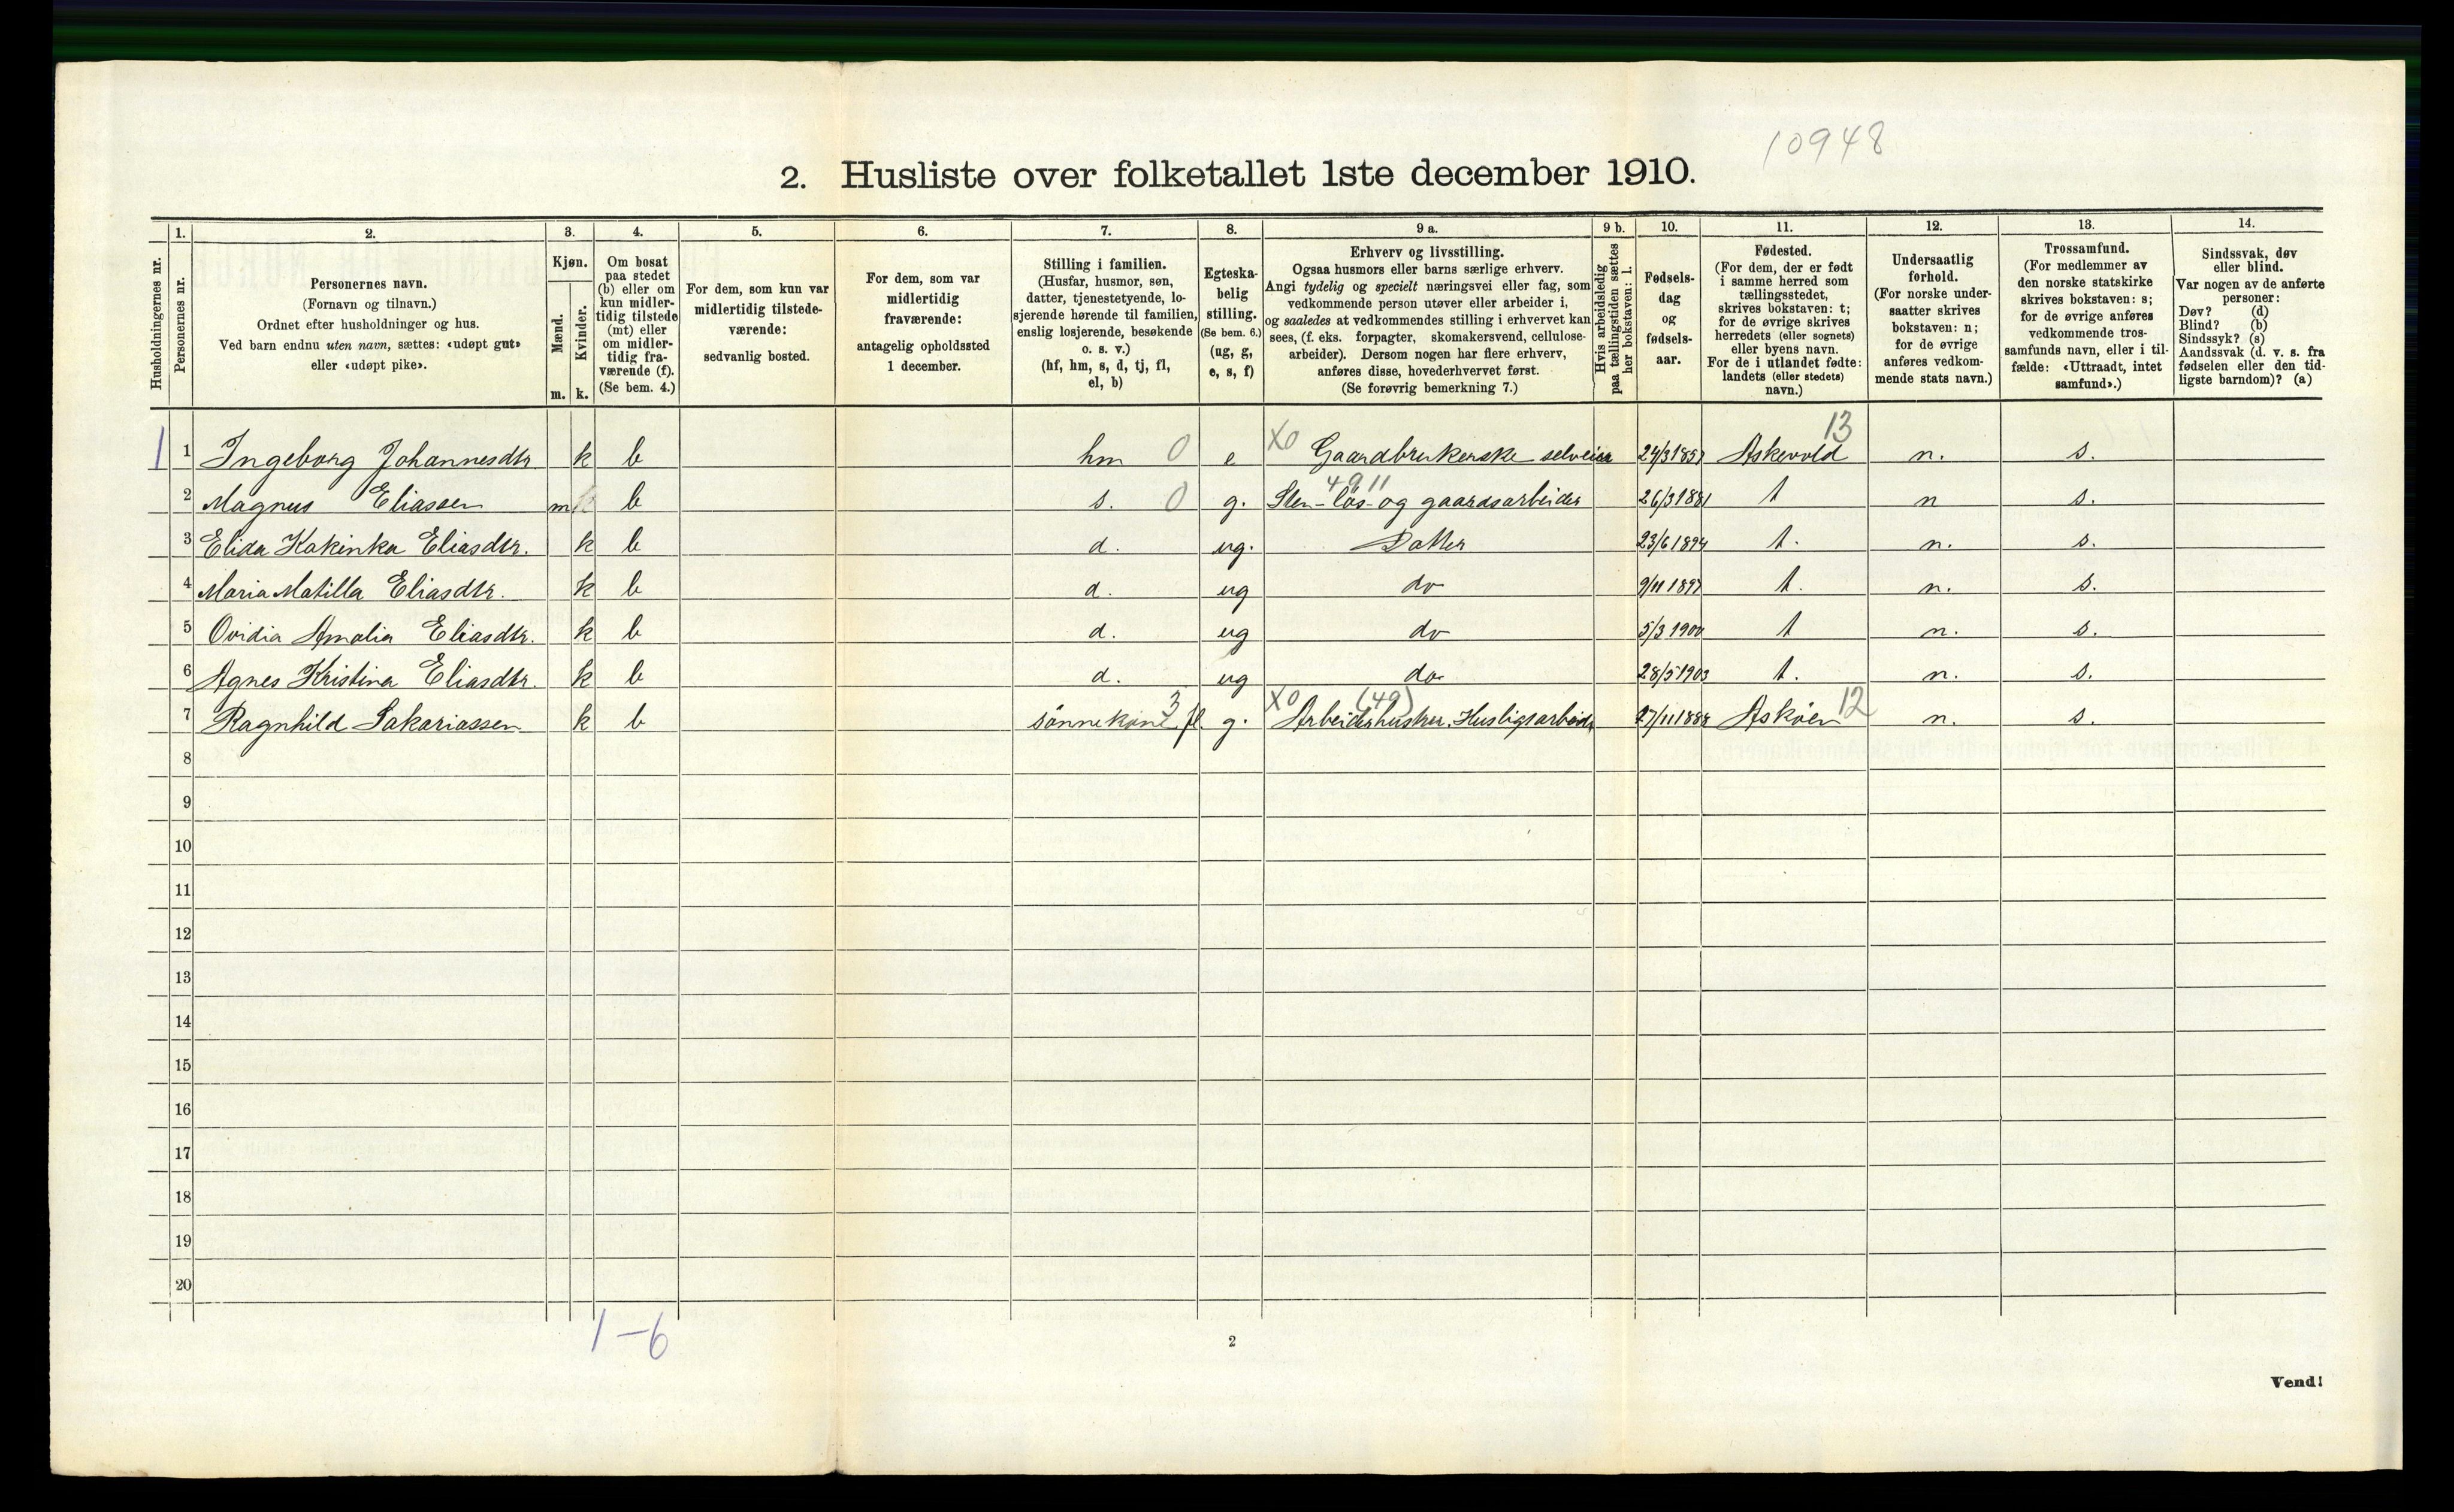 10948
2. Husliste over folketallet 1ste december 1910.
Husholdningernes nr.
1.
Personernes nr.
2.
Personernes navn.
(Fornavn og tilnavn.)
Ordnet efter husholdninger og hus.
Ved barn endnu uten navn, sættes: «udøpt gut»
eller «udøpt pike».
3.
Kjøn.
Mænd.
Kvinder.
m. k.
4.
Om bosat
paa stedet
(b) eller om
kun midler-
tidig tilstede
(mt) eller
om midler-
tidig fra-
værende (f).
(Se bem. 4.)
5.
For dem, som kun var
midlertidig tilstede-
værende:
sedvanlig bosted.
6.
For dem, som var
midlertidig
fraværende:
antagelig opholdssted
1 december.
7.
Stilling i familien.
(Husfar, husmor, søn,
datter, tjenestetyende, lo-
sjerende hørende til familien,
enslig losjerende, besøkende
o. s. v.)
(hf, hm, s, d, tj, fl,
el, b)
8.
Egteska-
belig
stilling.
(Se bem. 6.)
(ug, g,
e, s, f)
9 a.
Erhverv og livsstilling.
Ogsaa husmors eller barns særlige erhverv.
Angi tydelig og specielt næringsvei eller fag, som
vedkommende person utøver eller arbeider i,
og saaledes at vedkommendes stilling i erhvervet kan
sees, (f. eks. forpagter, skomakersvend, cellulose-
arbeider). Dersom nogen har flere erhverv,
anføres disse, hovederhvervet først.
(Se forøvrig bemerkning 7.)
9 b.
Hvis arbeidsledig
paa tællingstiden sættes
her bokstaven: l.
10.
Fødsels-
dag
og
fødsels-
aar.
11.
Fødested.
(For dem, der er født
i samme herred som
tællingsstedet,
skrives bokstaven: t;
for de øvrige skrives
herredets (eller sognets)
eller byens navn.
For de i utlandet fødte:
landets (eller stedets)
navn.)
12.
Undersaatlig
forhold.
(For norske under-
saatter skrives
bokstaven: n;
for de øvrige
anføres vedkom-
mende stats navn.)
13.
Trossamfund.
(For medlemmer av
den norske statskirke
skrives bokstaven: s;
for de øvrige anføres
vedkommende tros-
samfunds navn, eller i til-
fælde: «Uttraadt, intet
samfund».)
14.
Sindssvak, døv
eller blind.
Var nogen av de anførte
personer:
Døv? (d)
Blind? (b)
Sindssyk? (s)
Aandssvak (d. v. s. fra
fødselen eller den tid-
ligste barndom)? (a)
1 1 Ingeborg Johannesdtr. k b hm 0 e X0 Gaardbrukerske selveier Askevold 13 n. s.
2 Magnus Eliassen m b s. 0 g. Sten- løs- og gaardsarbeider 4911 26/3 1881 t n s.
3 Elida Kakinka Eliasdtr. k b d. ug. Datter 23/6 1894 t. n. s.
4 Maria Matilla Eliasdtr. k b d. ug do 9/11 1897 t. n. s.
5 Ovidia Amalia Eliasdtr. k b d. ug do 5/3 1900 t n. s.
6 Agnes Kristina Eliasdtr. k b d. ug do 28/5 1903 t. n. s.
7 Ragnhild Sakariassen k b sønnekone fl 3 g. X0 (49) Arbeiderhustru. Husligtarbeide 27/11 1888 Askøen 12 n. s.
8
9
10
11
12
13
14
15
16
17
18
19
20
1-6
2
Vend!